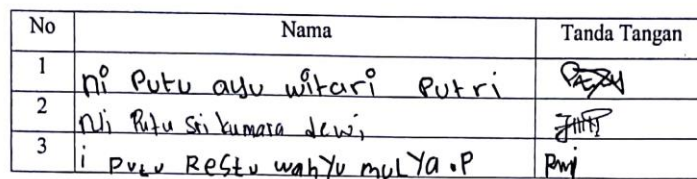 No Nama Tanda Tangan
1 ni Putu ayu witari Putri
2 Ni Putu Sri kumara dewi
3 i Putu Restu wahyu mulya .P